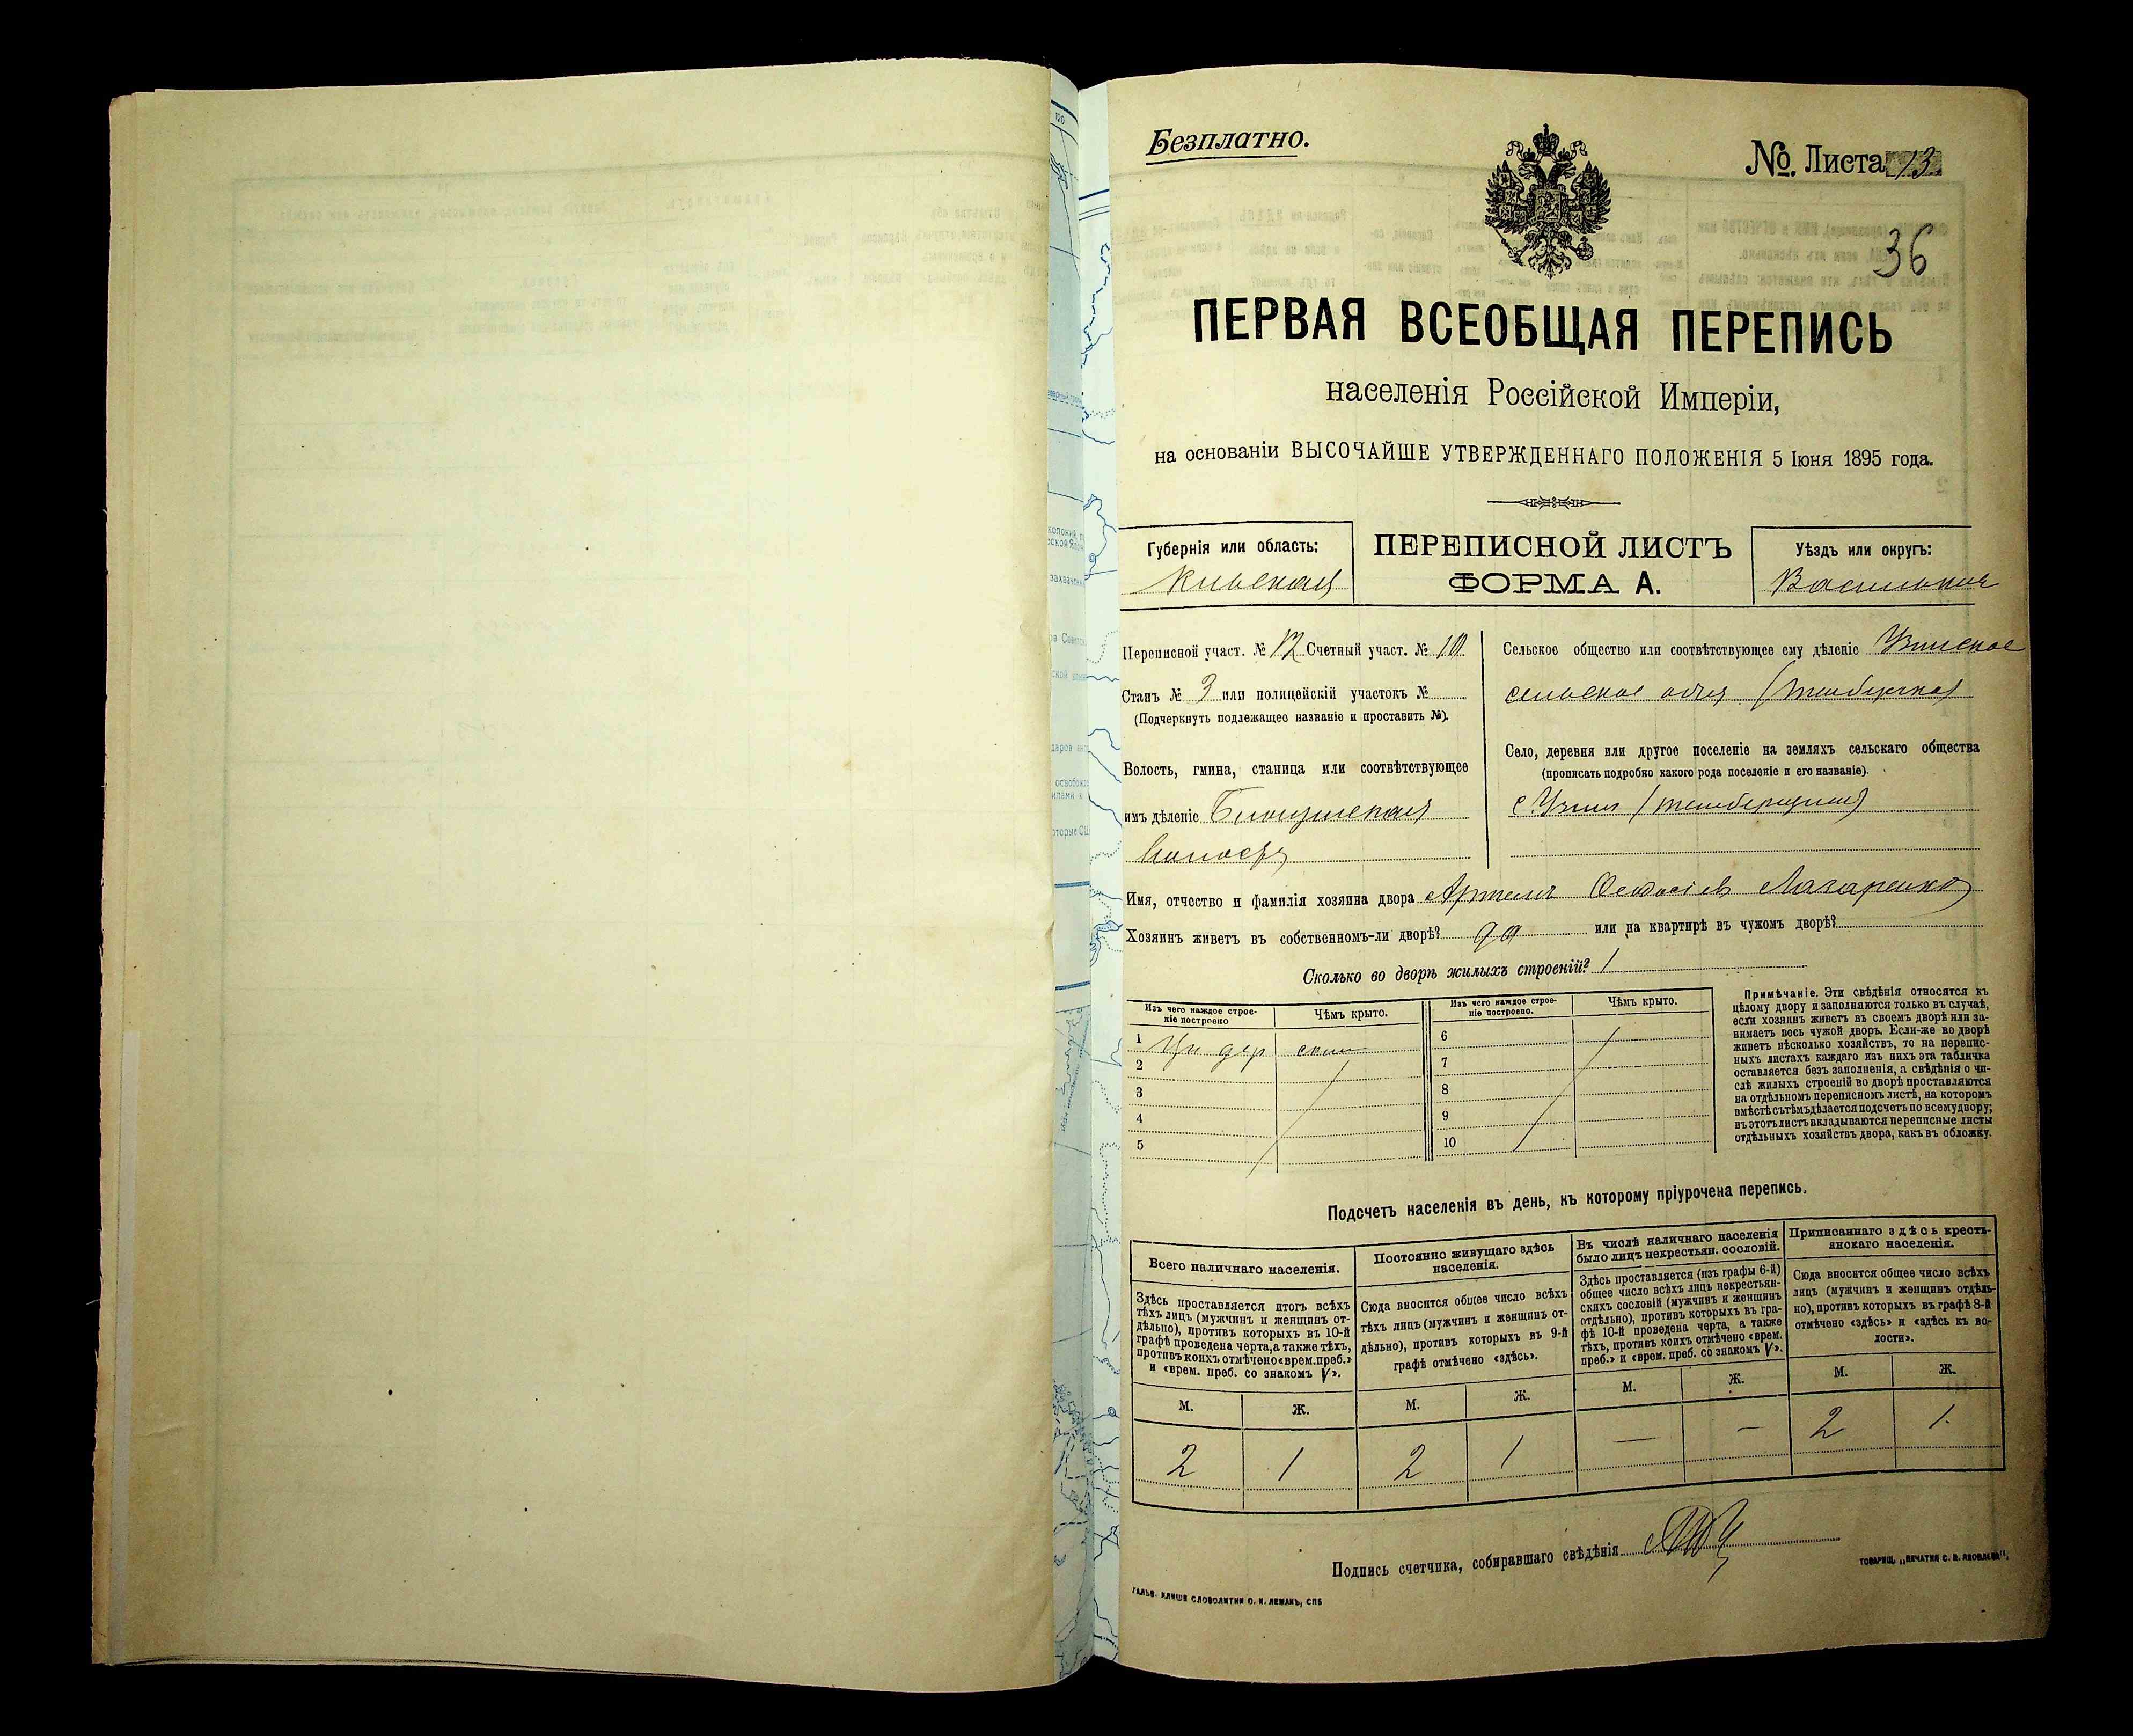 Безплатно.
№ Листа 13
36
ПЕРВАЯ ВСЕОБЩАЯ ПЕРЕПИСЬ
населенія Россійской Имперіи,
на основаніи ВЫСОЧАЙШЕ УТВЕРЖДЕННАГО ПОЛОЖЕНІЯ 5 Іюня 1895 года.
Губернія или область:
Кіевская
ПЕРЕПИСНОЙ ЛИСТЪ
ФОРМА А.
Уѣздъ или округъ:
Переписной участ. № 12 Счетный участ. № 10
Станъ № 3 или полицейскій участокъ №
(Подчеркнуть подлежащее названіе и проставить №).
Волость, гмина, станица или соотвѣтствующее
имъ дѣленіе
Сельское общество или соотвѣтствующее ему дѣленіе Узинское
сельское
Село, деревня или другое поселеніе на земляхъ сельскаго общества
(прописать подробно какого рода поселеніе и его названіе).
с Узин
Имя, отчество и фамилія хозяина двора Артемъ Осодосіевъ Лазаренко
Хозяинъ живетъ въ собственномъ-ли дворѣ? да или на квартирѣ въ чужомъ дворѣ?
Сколько во дворѣ жилыхъ строеній? 1
Изъ чего каждое строе-
ніе построено
Чѣмъ крыто.
1 дер
2
3
4
5
Изъ чего каждое строе-
ніе построено.
Чѣмъ крыто.
6
7
8
9
10
Примѣчаніе. Эти свѣдѣнія относятся къ
цѣлому двору и заполняются только въ случаѣ,
если хозяинъ живетъ въ своемъ дворѣ или за-
нимаетъ весь чужой дворъ. Если-же во дворѣ
живетъ нѣсколько хозяйствъ, то на перепис-
ныхъ листахъ каждаго изъ нихъ эта табличка
оставляется безъ заполненія, а свѣдѣнія о чи-
слѣ жилыхъ строеній во дворѣ проставляются
на отдѣльномъ переписномъ листѣ, на которомъ
вмѣстѣ съ тѣмъ дѣлается подсчетъ по всему двору;
въ этотъ листъ вкладываются переписные листы
отдѣльныхъ хозяйствъ двора, какъ въ обложку.
Подсчетъ населенія въ день, къ которому пріурочена перепись.
Всего наличнаго населенія.
Здѣсь проставляется итогъ всѣхъ
тѣхъ лицъ (мужчинъ и женщинъ от-
дѣльно), противъ которыхъ въ 10-й
графѣ проведена черта, а также тѣхъ,
противъ коихъ отмѣчено «врем. преб.»
и «врем. преб. со знакомъ V».
М. Ж.
2 1
Постоянно живущаго здѣсь
населенія.
Сюда вносится общее число всѣхъ
тѣхъ лицъ (мужчинъ и женщинъ от-
дѣльно), противъ которыхъ въ 9-й
графѣ отмѣчено «здѣсь».
М. Ж.
2 1
Въ числѣ наличнаго населенія
было лицъ некрестьян. сословій.
Здѣсь проставляется (изъ графы 6-й)
общее число всѣхъ лицъ некрестьян-
скихъ сословій (мужчинъ и женщинъ
отдѣльно), противъ которыхъ въ гра-
фѣ 10-й проведена черта, а также
тѣхъ, противъ коихъ отмѣчено «врем.
преб.» и «врем. преб. со знакомъ V».
М. Ж.
— —
Приписаннаго здѣсь кресть-
янскаго населенія.
Сюда вносится общее число всѣхъ
лицъ (мужчинъ и женщинъ отдѣль-
но), противъ которыхъ въ графѣ 8-й
отмѣчено «здѣсь» и «здѣсь къ во-
лости».
М. Ж.
2 1.
Подпись счетчика, собиравшаго свѣдѣнія
ГАЛЬВ. КЛИШЕ СЛОВОЛИТНИ О. И. ЛЕМАНЪ, СПБ
ТОВАРИЩ. „ПЕЧАТНЯ С. П. ЯКОВЛЕВА“.